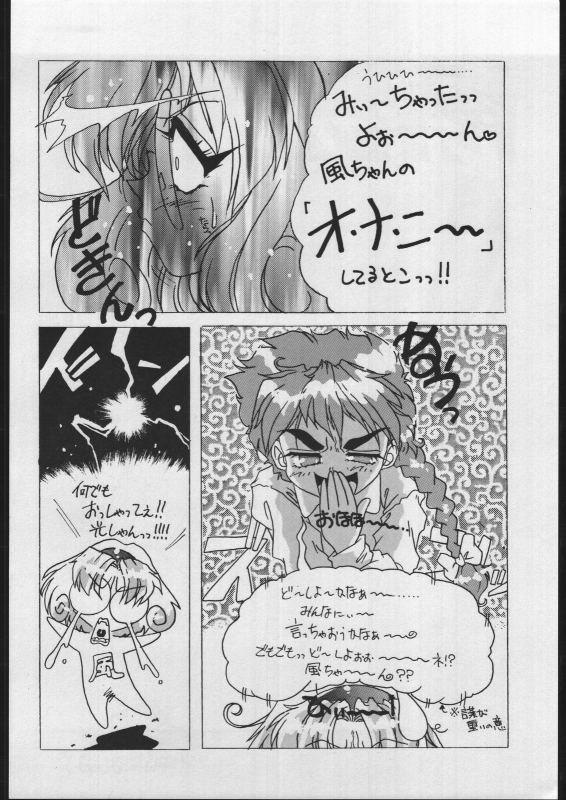 うひひひ〜〜〜〜……
みぃ〜ちゃったっっ
よぉ〜〜〜〜ん♡
風ちゃんの
「オ・ナ・ニ〜〜」
してるとこっっ!!
どきんっ
ぬうっ
おほほ〜〜〜…
ど〜しよ〜かなぁ〜〜……
みんなにぃ〜〜
言っちゃおうかなぁ〜〜♡
でもでもっっど〜しよぉぉ〜〜〜〜ネ!?
風ちゃ〜〜ん??
ひぃ〜〜〜!
※謀が
重いの意
ドーン
何でも
おっしゃってぇ!!
光しゃんっっ!!!!
風